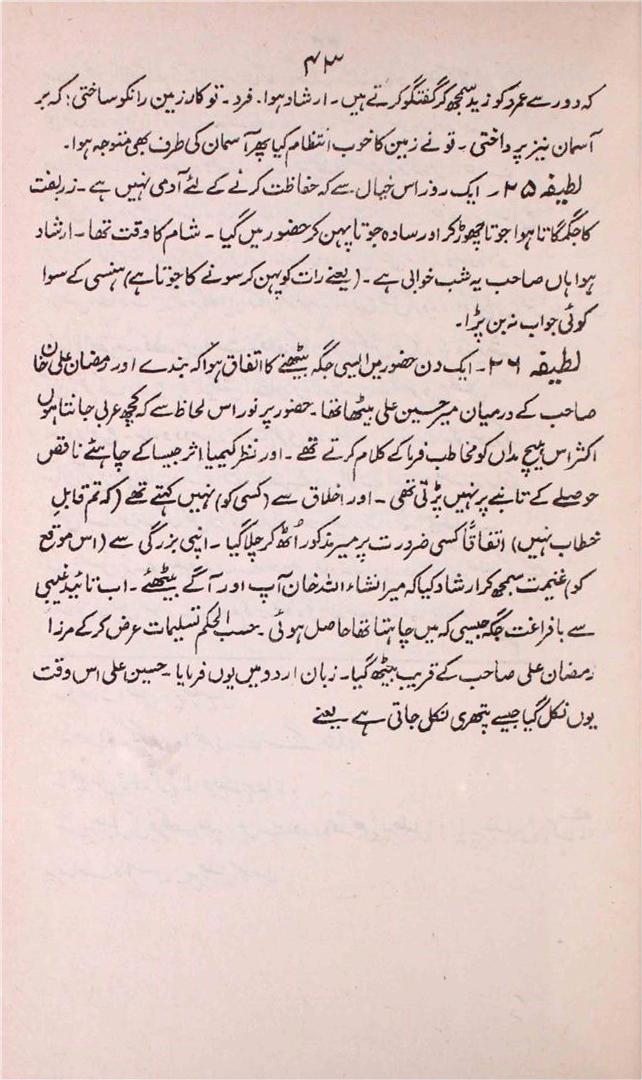 ۴۳
کہ دور سے عمرد کو زید سمجھ کر گفتگو کرتے ہیں۔ ارشاد ہوا۔ فرد۔ تو کار زمین رانکو ساختی : کہ بر
آسمان نیز پرداختی۔ تو نے زمین کا خوب انتظام کیا پھر آسمان کی طرف بھی متوجہ ہوا۔
لطیفہ ۲۵۔ ایک روز اس خیال سے کہ حفاظت کرنے کے لئے آدمی نہیں ہے۔ زربفت
کا جگمگاتا ہوا جوتا چھوڑ کر اور سادہ جوتا پہن کر حضور میں گیا۔ شام کا وقت تھا۔ ارشاد
ہوا ہاں صاحب یہ شب خوابی ہے۔ (یعنے رات کو پہن کر سونے کا جوتا ہے) ہنسی کے سوا
کوئی جواب نہ بن پڑا۔
لطیفہ ۲۶۔ ایک دن حضور میں ایسی جگہ بیٹھنے کا اتفاق ہوا کہ بندے اور رمضان علی خان
صاحب کے درمیان میر حسین علی بیٹھا تھا۔ حضور پر نور اس لحاظ سے کہ کچھ عربی جانتا ہوں
اکثر اس ہیچ مداں کو مخاطب فرما کے کلام کرتے تھے۔ اور نظر کیمیا اثر جیسا کے چاہئے ناقص
حوصلے کے تانبے پر نہیں پڑتی تھی۔ اور اخلاق سے (کسی کو) نہیں کہتے تھے (کہ تم قابل
خطاب نہیں) اتفاقاً کسی ضرورت پر میر مذکور اُٹھ کر چلا گیا۔ اپنی بزرگی سے (اس موقع
کو) غنیمت سمجھ کر ارشاد کیا کہ میر انشاء اللہ خان آپ اور آگے بیٹھئے۔ اب تائید غیبی
سے با فراغت جگہ جیسی کہ میں چاہتا تھا حاصل ہوئی۔ حسب الحکم تسلیمات عرض کر کے مرزا
رمضان علی صاحب کے قریب بیٹھ گیا۔ زبان اردو میں یوں فرمایا۔ حسین علی اس وقت
یوں نکل گیا جیسے پتھری نکل جاتی ہے یعنے